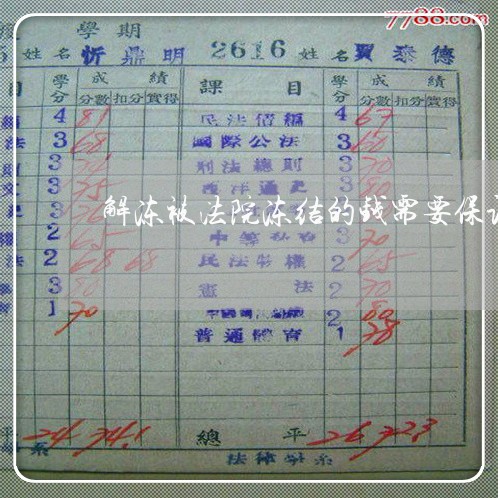 7788.com
學期
姓名 忻鼎明 2616 姓名 賈泰德
目 學分 成績 課目 學分 成績
分數 扣分 實得 分數 扣分 實得
4 81 民法債編 4 67
法 3 68 國際公法 3 60
3 刑法總則 3 70
3 75 西洋通史 3 80
3
解冻被法院冻结的钱需要保
2 65 3 70
法 2 68 68 民法物權 2 65
3 80 憲法 2 70
1 70 2 80
普通體育 1 78
平 24 74.1 總平 26 72.3
系 法律學系